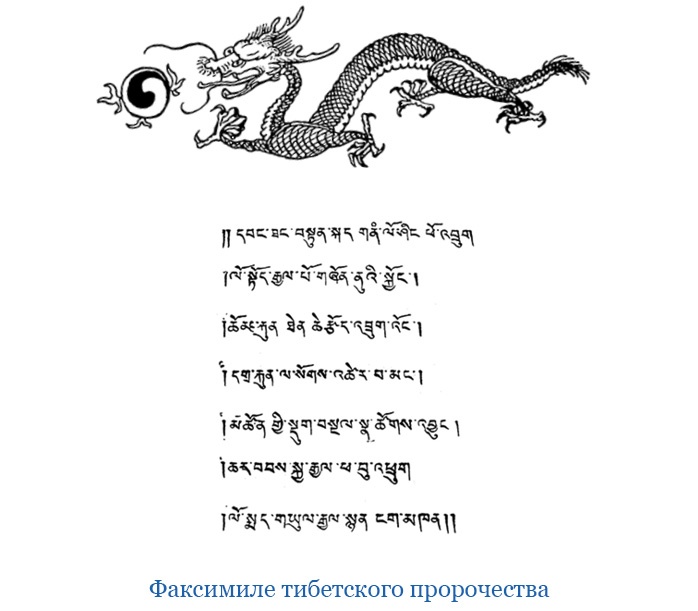 །། དབང་ཐང་བསྟུན་སྐད གནཾ་ལོ་ཤིང ཕོ་འབྲུག
།ལོ་སྟོད་རྒྱལ་པོ་གཞོན་ནུའི་སྐྱོང་།
ཆེ་རྩོད་འཇུག་འོང་།
།དགྲ་རྐུན་ལ་སོགས་འཚེ་ར་བ་མང་།
།མཚོན་གྱི་སྡུག་བསྔལ་སྣ་ཚོགས་འབྱུང །
།ཆར་བབས་སྐྱ་རྒྱལ་ཕ་བུ་འཕྲུག
།ལོ་སྨད་གཡུལ་རྒྱལ་སྙན ངག་མཁན།།
Факсимиле тибетского пророчества